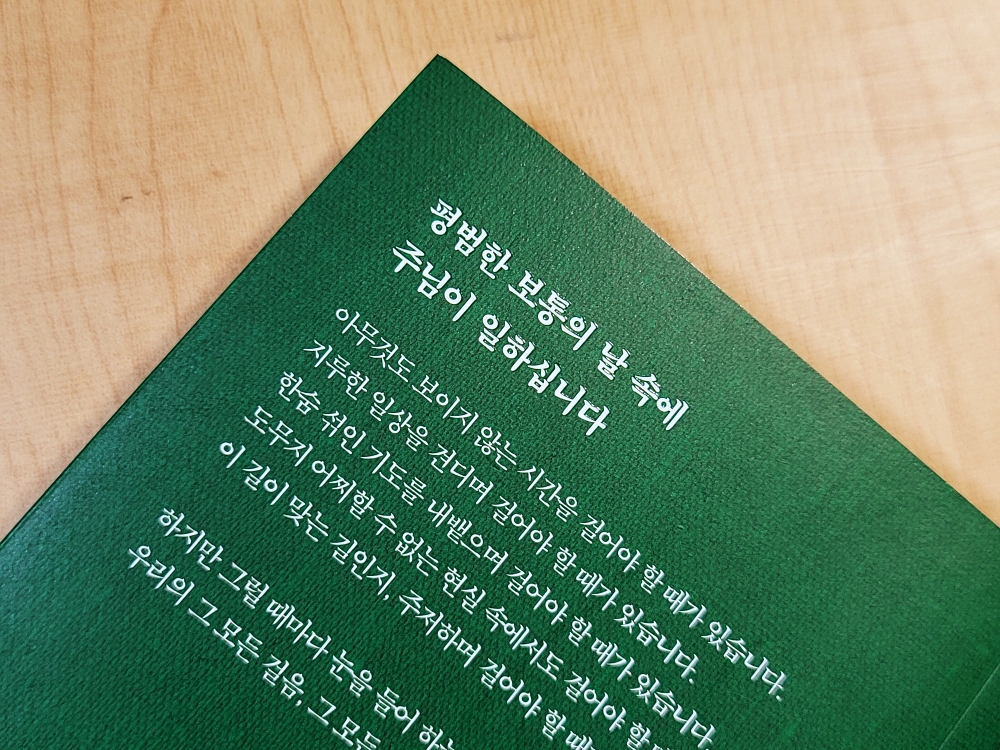 평범한 보통의 날 속에
주님이 일하십니다
아무것도 보이지 않는 시간을 걸어야 할 때가 있습니다.
지루한 일상을 견디며 걸어야 할 때가 있습니다.
한숨 섞인 기도를 내뱉으며 걸어야 할 때가 있습니다.
도무지 어찌할 수 없는 현실 속에서도 걸어야 할 때
이 길이 맞는 길인지, 주저하며 걸어야 할 때
하지만 그럴 때마다 눈을 들어
우리의 그 모든 걸음, 그 모든